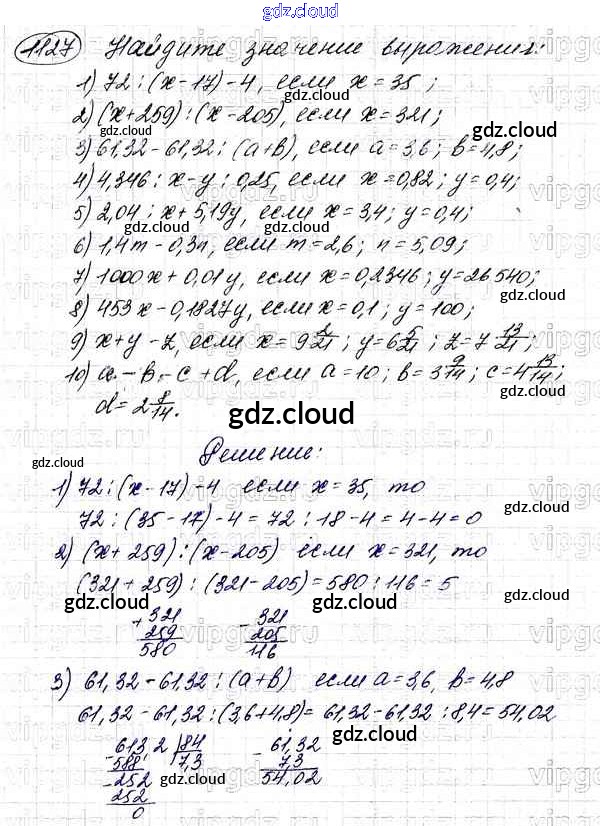 gdz.cloud
1127 Найдите значение выражения:
1) 72 : (x-17)-4, если x=35;
2) (x+259):(x-205), если x=321;
3) 61,32-61,32:(a+b), если a=3,6; b=4,8;
4) 4,346:x-y:0,25, если x=0,82; y=0,4;
5) 2,04:x+5,19y, если x=3,4; y=0,4;
6) 1,4m-0,3n, если m=2,6; n=5,09;
7) 1000x+0,01y, если x=0,2346; y=26540;
8) 453x-0,1827y, если x=0,1; y=100;
9) x+y-z, если x=9 2/21; y=6 5/21; z=7 13/21;
10) a-b-c+d, если a=10; b=3 9/14; c=4 13/14;
d=2 8/14.
gdz.cloud
Решение:
1) 72:(x-17)-4 если x=35, то
72:(35-17)-4=72:18-4=4-4=0
2) (x+259):(x-205) если x=321, то
(321+259):(321-205)=580:116=5
+321 -321
259 205
580 116
3) 61,32-61,32:(a+b) если a=3,6, b=4,8
61,32-61,32:(3,6+4,8)=61,32-61,32:8,4=54,02
-613 2 |84 -61,32
588 7,3 7,3
-252 54,02
252
0